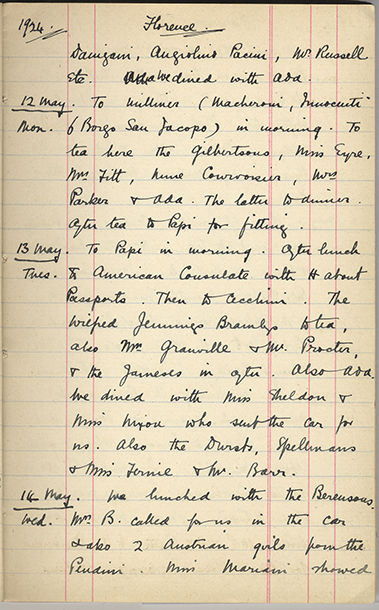 1924. Florence.
Davigani, Angiolino Pacini, Mr. Russell
etc. We dined with Ada.
12 May. To milliner (Macheroni, Innocenti
Mon. 6 Borgo San Jacopo) in morning. To
tea here the Gilbertsons, Miss Eyre,
Mrs Fitt, Mme Courvoisier, Mrs
Parker & Ada. The latter to dinner.
After tea to Papi for fitting.
13 May. To Papi in morning. After lunch
Tues. to American Consulate with H about
Passports. Then to Cecchini. The
Wilfred Jennings Bramlys to tea,
also Mrs Granville & Mr. Procter,
& the Jameses in after. Also Ada.
We dined with Miss Sheldon &
Miss Nixon who sent the car for
us. Also the Dursts, Spellmans
& Miss Fernie & Mr. Barr.
14 May. We lunched with the Berensons.
Wed. Mrs B. called for us in the car
& also 2 Austrian girls from the
Pendini. Miss Mariani showed